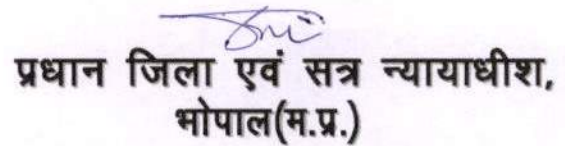 प्रधान जिला एवं सत्र न्यायाधीश,
भोपाल(म.प्र.)